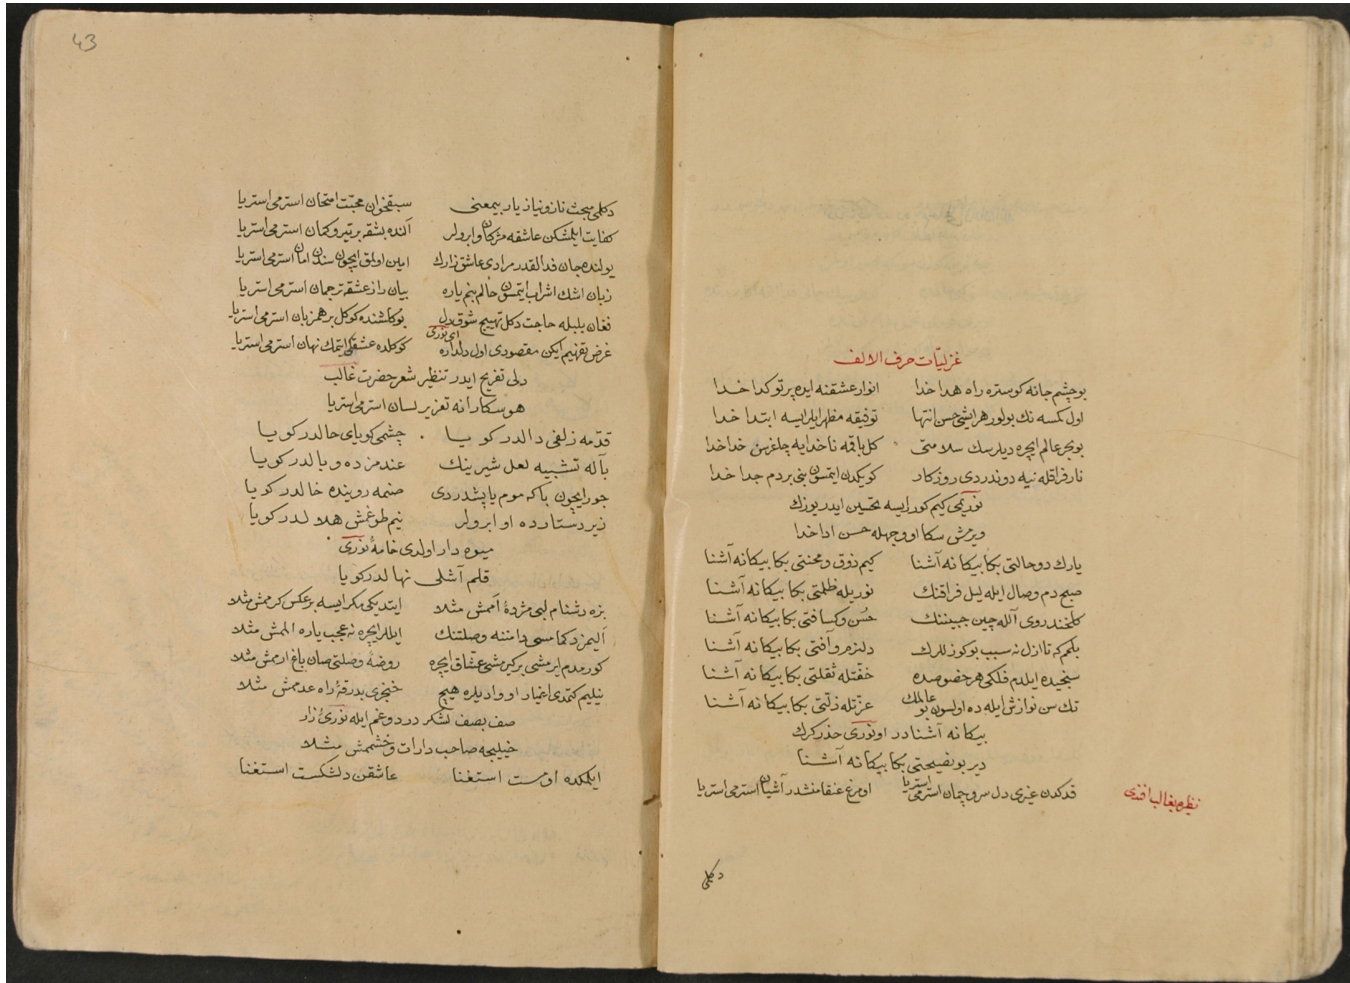 غزليّات حرف الالف
بو چشم جانه كوستره راه هدا خدا انوار عشقنه ايده پرتو كدا خدا
اول كمسه نك بولور هر ايشى حسن انتها توفيقه مظهر ايلرايسه ابتدا خدا
بو بحر عالم ايچره ديلرسك سلامتى كل باقمه ناخدايه چاغرسن خدا خدا
نار فراقله نيه دوندردى روزكار كويكدن ايتمسون بنى بردم جدا خدا
نورىمى كيم كورايسه تحسين ايدر يوزك
ويرمش سكا او وجهله حسن ادا خدا
يارك دو حالتى بكا بيكانه آشنا كيم ذوق و محنتى بكا بيكانه آشنا
صبح دم وصال ايله ليل فراقنك نوريله ظلمتى بكا بيكانه آشنا
كلخند روى آلله چين جبيننك حسن و كسافتى بكا بيكانه آشنا
بلكم كه تا ازل نه سبب بو كوزللرك دلنزم و آفتى بكا بيكانه آشنا
سنجيده ايلدم فلكى هر خصوصده خفتله ثقلتى بكا بيكانه آشنا
تك سن نوازش ايله ده اولسون بو عالمك عزتله ذلتى بكا بيكانه آشنا
بيكانه آشنادر او نورى حذر كرك
دير بو نصيحتى بكا بيكانه آشنا
نظيره بغالب افندى
قدكدن غيرى دل سرو چمان استرمى استريا او مرغ عنقا منشدر آشيان استرمى استريا
دكلمى
43
دكلمى بحث ناز و نياز يار بيمعنى سبقخوان محبت امتحان استرمى استريا
كفايت ايلمشكن عاشقه مژكان و ابرولر آلنده بشقه بر تير و كمان استرمى استريا
يولنده جان فدا القدر مرادى عاشق زارك امين اولمق ايچون سندن امان استرمى استريا
زبان اشك اشراب ايتمسون حالم بنم ياره بيان راز عشقه ترجمان استرمى استريا
فغان بلبله حاجت دكل تهييج شوق دل بو كلشنده كوكل بر همزبان استرمى استريا
غرض تفهيم ايكن مقصودى اول دلداره اى نورى كوكلده عشقى ايتمك نهان استرمى استريا
دلى تفريح ايدر تنظير شعر حضرت غالب
هوسكارانه تعزير لسان استرمى استريا
قدّمه زلفى دالدر كويا چشمى كوياى حالدر كويا
باله تشبيه لعل شيرينك عندمزده وبالدر كويا
جور ايچون باكه موم ياپشدردى صنمه روينده خالدر كويا
زير دستارده او ابرولر نيم طوغمش هلالدر كويا
ميوه دار اولدى خامهٔ نورى
قلم آشلى نهالدر كويا
بزه دشنام لبى مژدهٔ اَممش مثلا ايتديكى مكر ايسه بر عكس كرممش مثلا
اليمز دكمامسى دامننه وصلتنك ايللر ايچره نه عجب ياره المش مثلا
كورمدم ايرمشى بر كيرمشى عشّاق ايچره روضهٔ وصلتى صان باغ ارمش مثلا
بيليم كتمدى اغيار او واديلره هيچ خنجرى بدرقهٔ راه عدممش مثلا
صف بصف لشكر درد و غم ايله نورئ زار
خيليجه صاحب دارات و حشممش مثلا
ايلمكده او مست استغنا عاشقن دلشكست استغنا